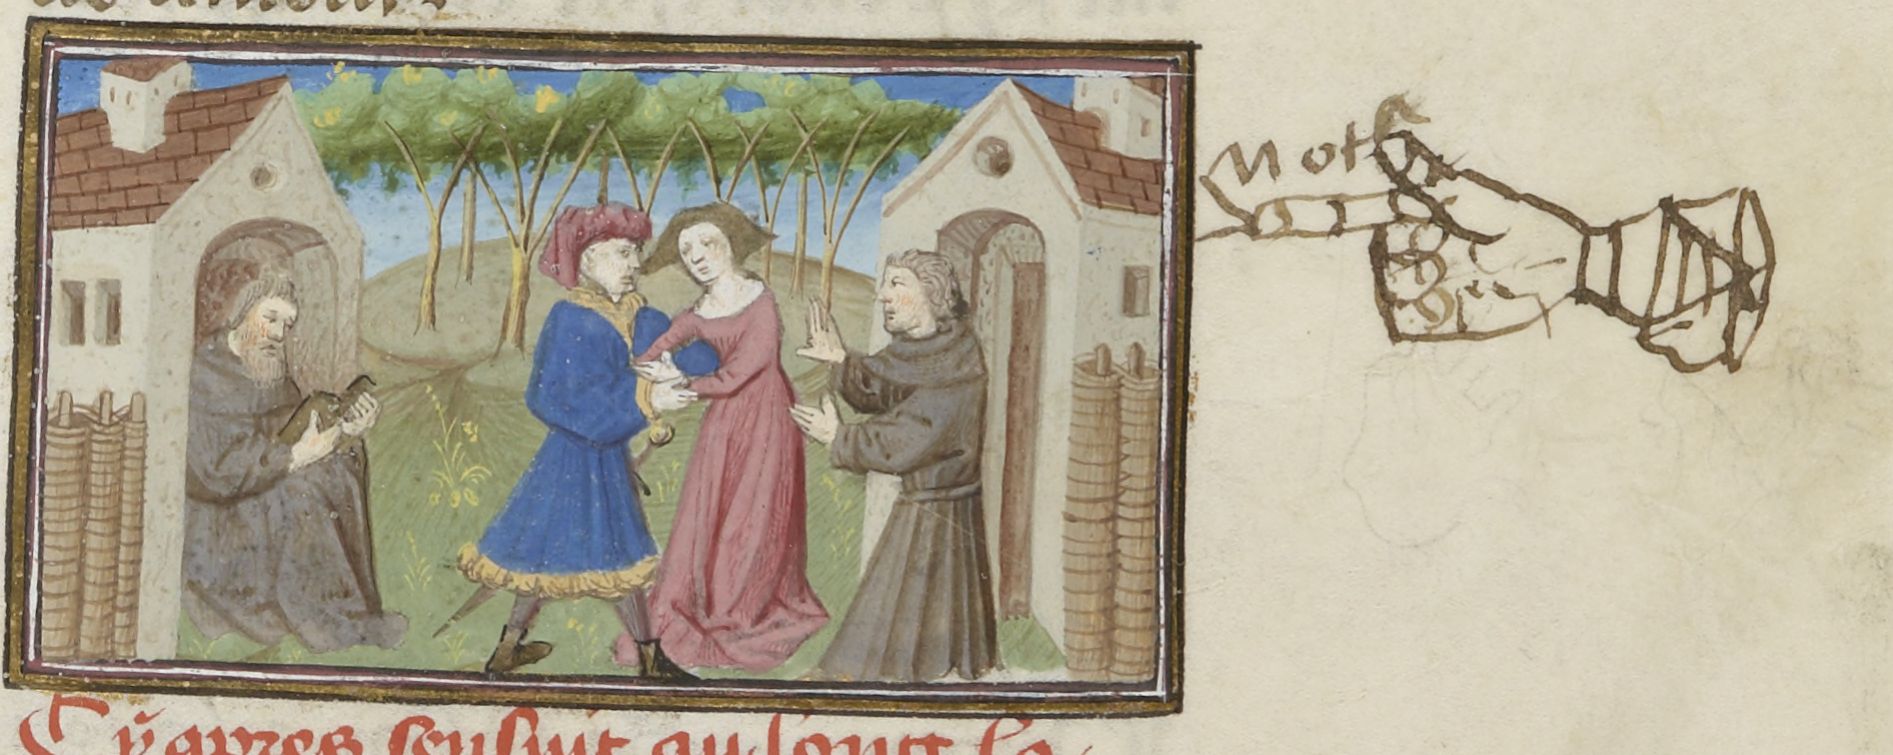 Nota
Cy apres sensuit au long la